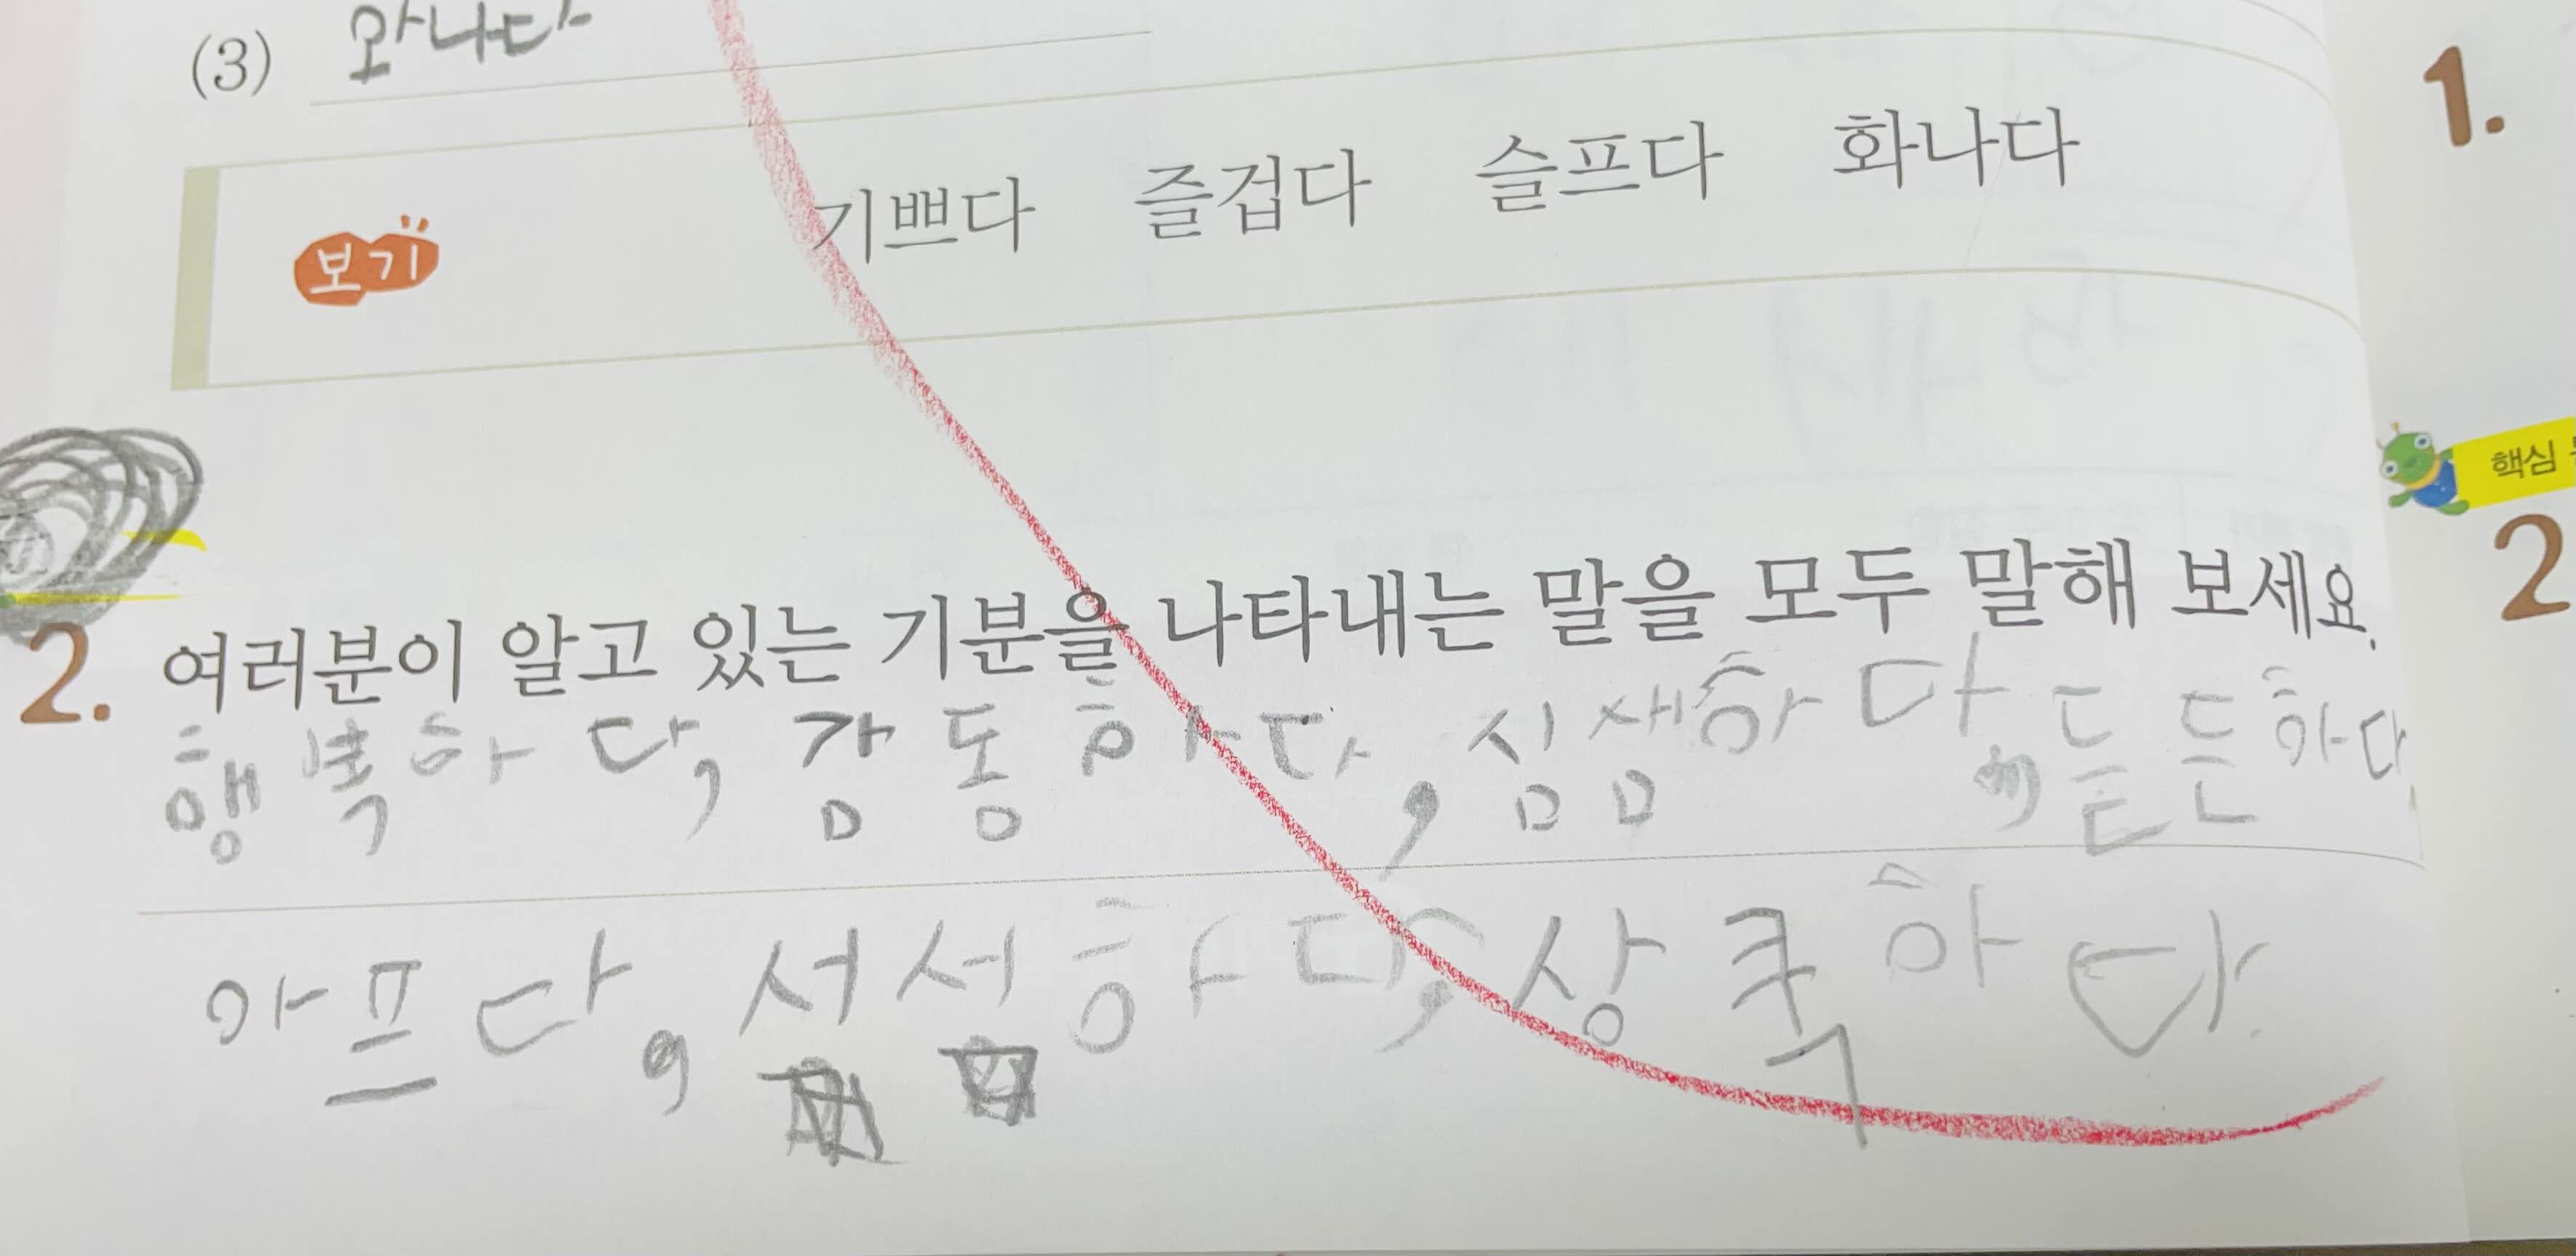 (3) 화나다
보기 기쁘다 즐겁다 슬프다 화나다
1.
핵심
2. 여러분이 알고 있는 기분을 나타내는 말을 모두 말해 보세요.
2
행복하다, 감동하다, 심샘하다, 든든하다
아프다, 서서하다, 상쾍하다.